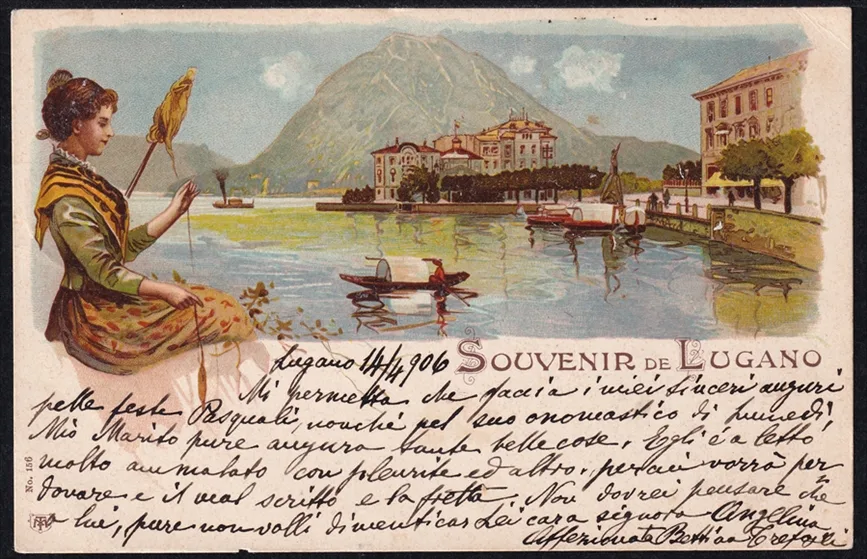 SOUVENIR DE LUGANO
Lugano 14/4 906
Mi permetta che faccia i miei sinceri auguri
pelle feste Pasquali, nonché pel suo onomastico di lunedì,
Mio Marito pure augura tante belle cose. Egli é a letto
molto ammalato con pleurite ed altro, perciò vorrà per-
donare e il mal scritto e la fretta. Non dovrei pensare che
a lui, pure non volli dimenticar Lei cara signora Angelina
Affezionata Bettina
No. 156